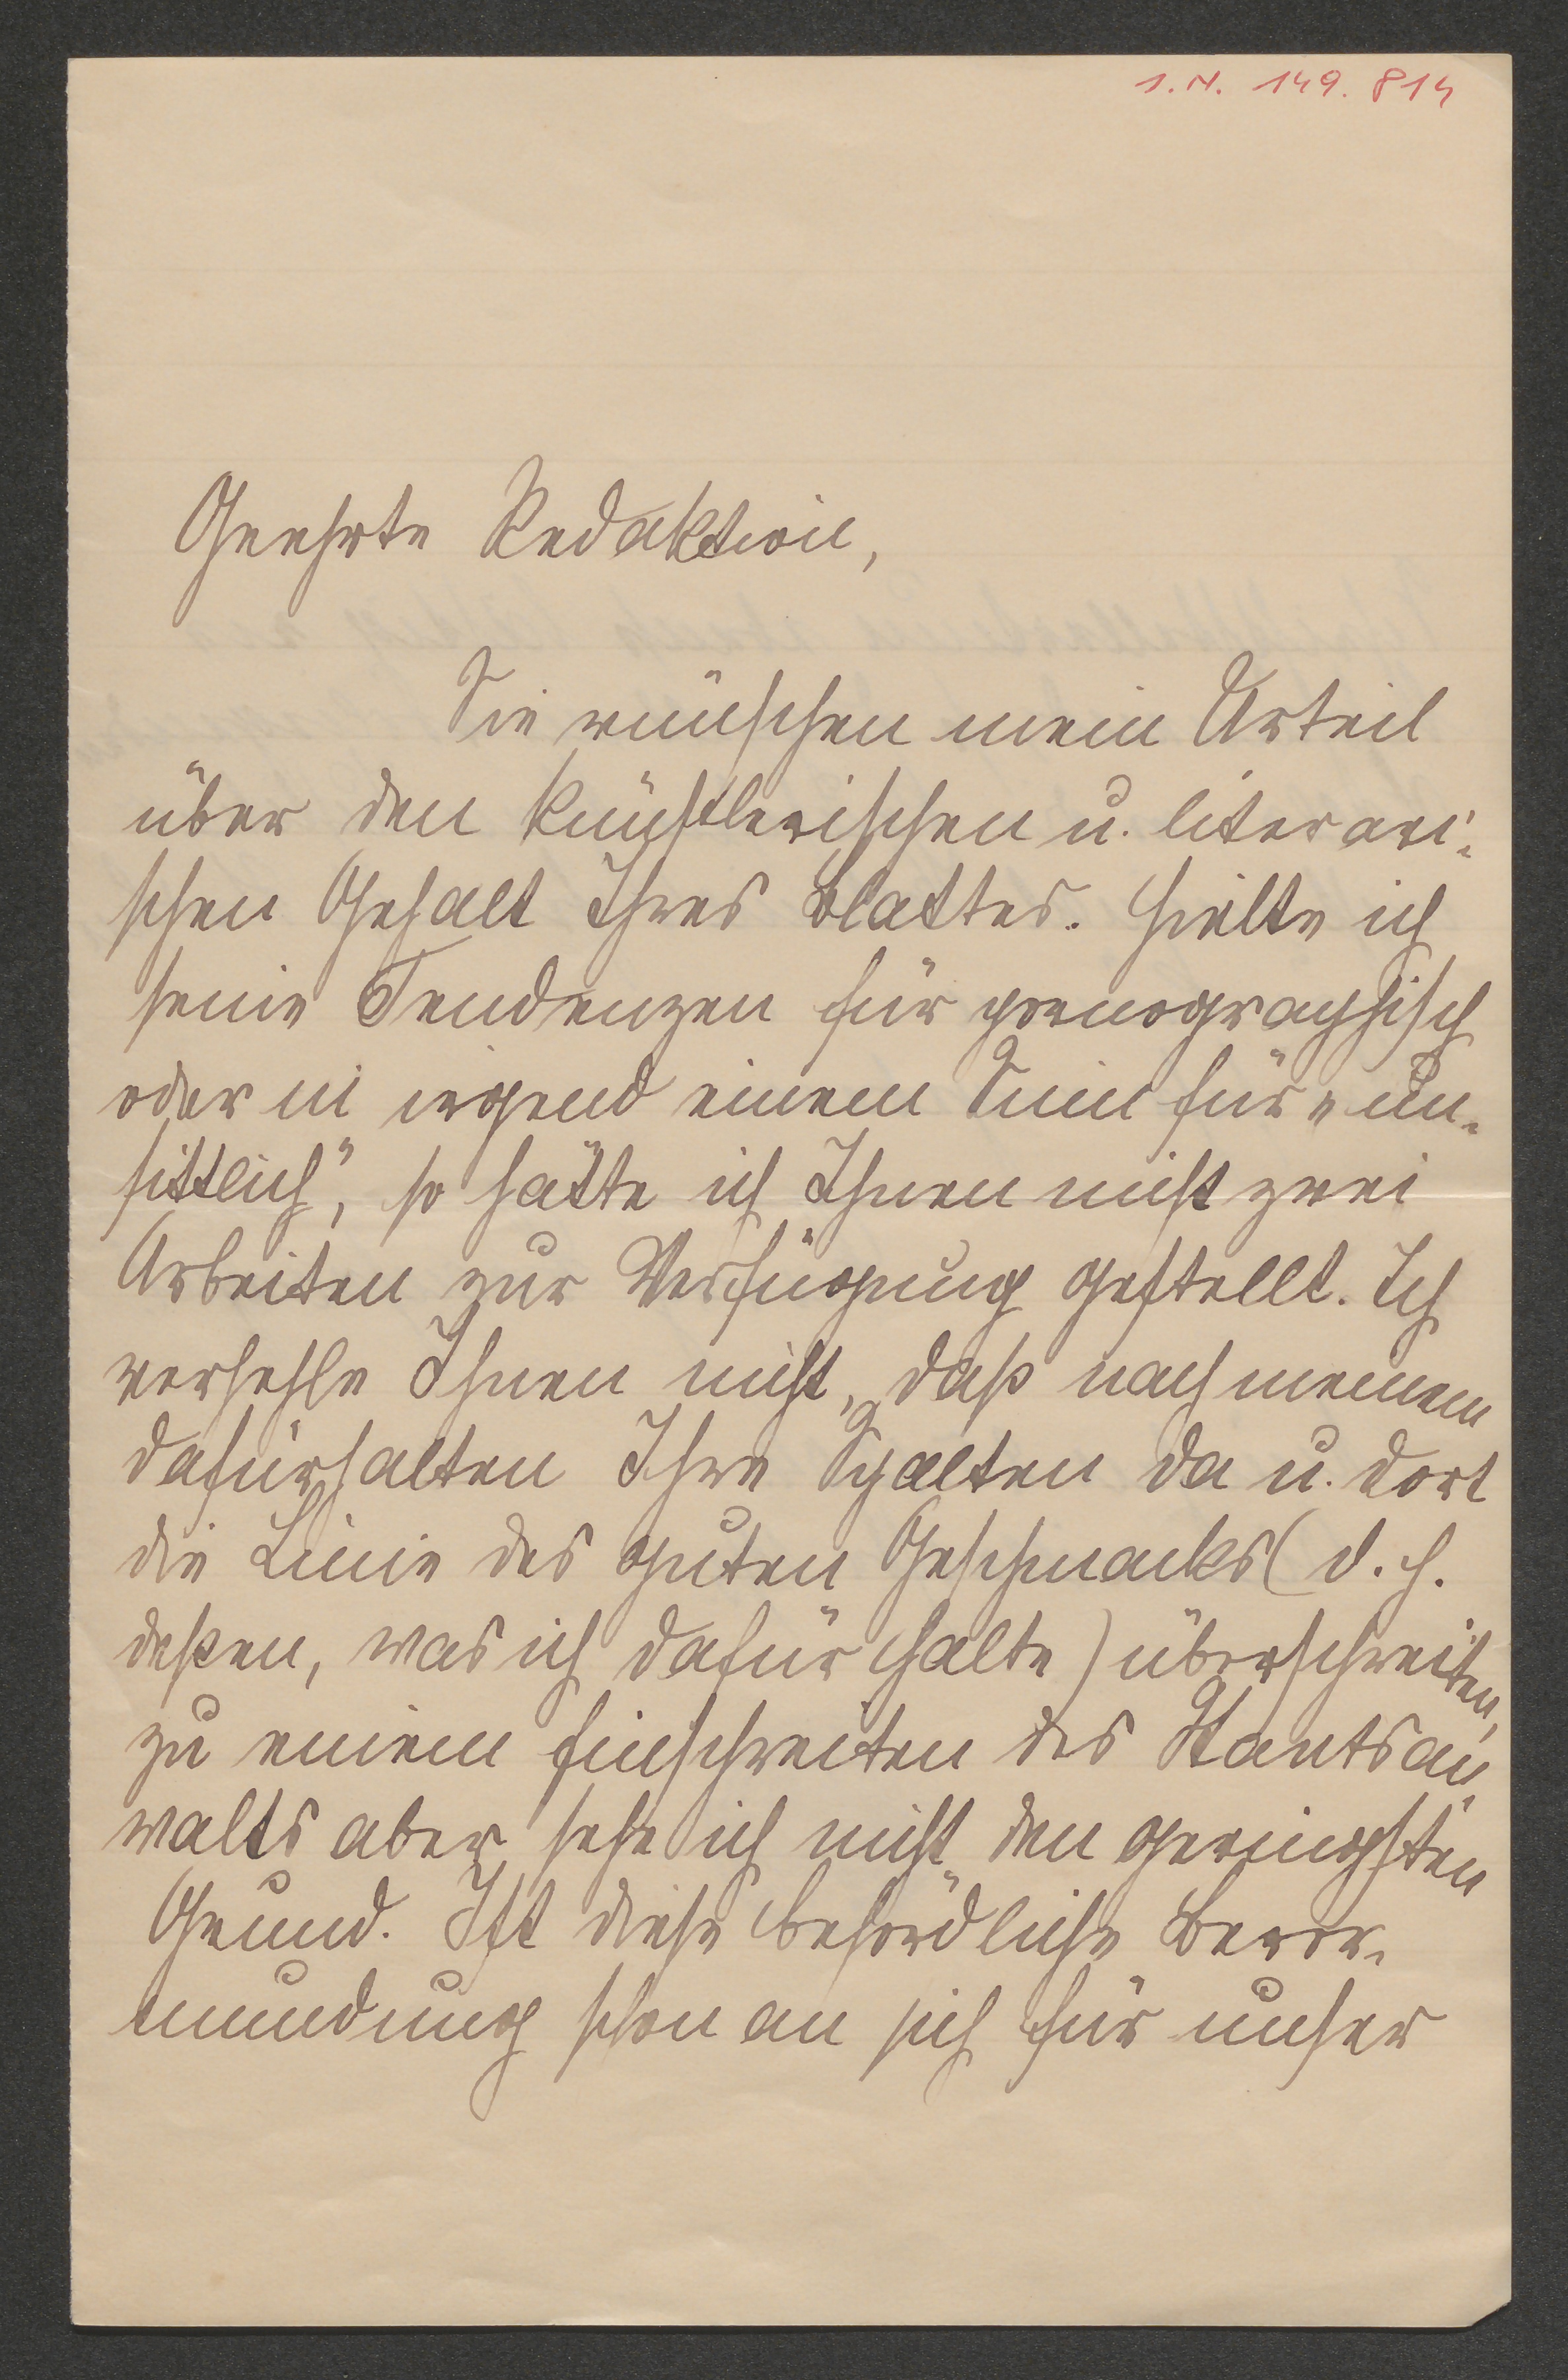 I. N. 149. 814
Geehrte Redaktion,
Sie wünschen mein Urteil
über den künstlerischen u. literari-
schen Gehalt Ihres Blattes. Hielte ich
seine Tendenzen für pornographisch
oder in irgend einem Sinn für „un-
sittlich“, so hätte ich Ihnen nicht zwei
Arbeiten zur Verfügung gestellt. Ich
verhehle Ihnen nicht, daß nach meinem
dafürhalten Ihre Spalten da u. dort
die Linie des guten Geschmacks (d. h.
deßen, was ich dafür halte) überschreiten,
zu einem Einschreiten des Staatsan-
walts aber sehe ich nicht den geringsten
Grund. Ist diese behördliche Bevor-
mundung schon an sich für unser